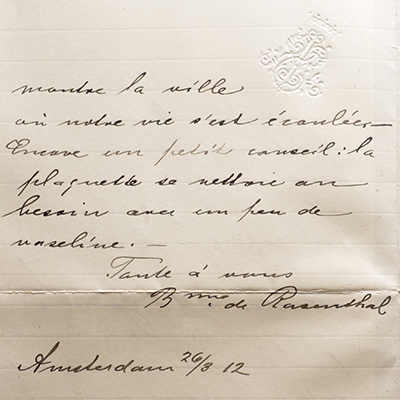 montre la ville
où notre vie s'est écoulée.—
Encore un petit conseil: la
plaquette se nettoie au
besoin avec un peu de
vaseline. —
Toute à vous
Bnne. de Rosenthal
Amsterdam 26/3 12